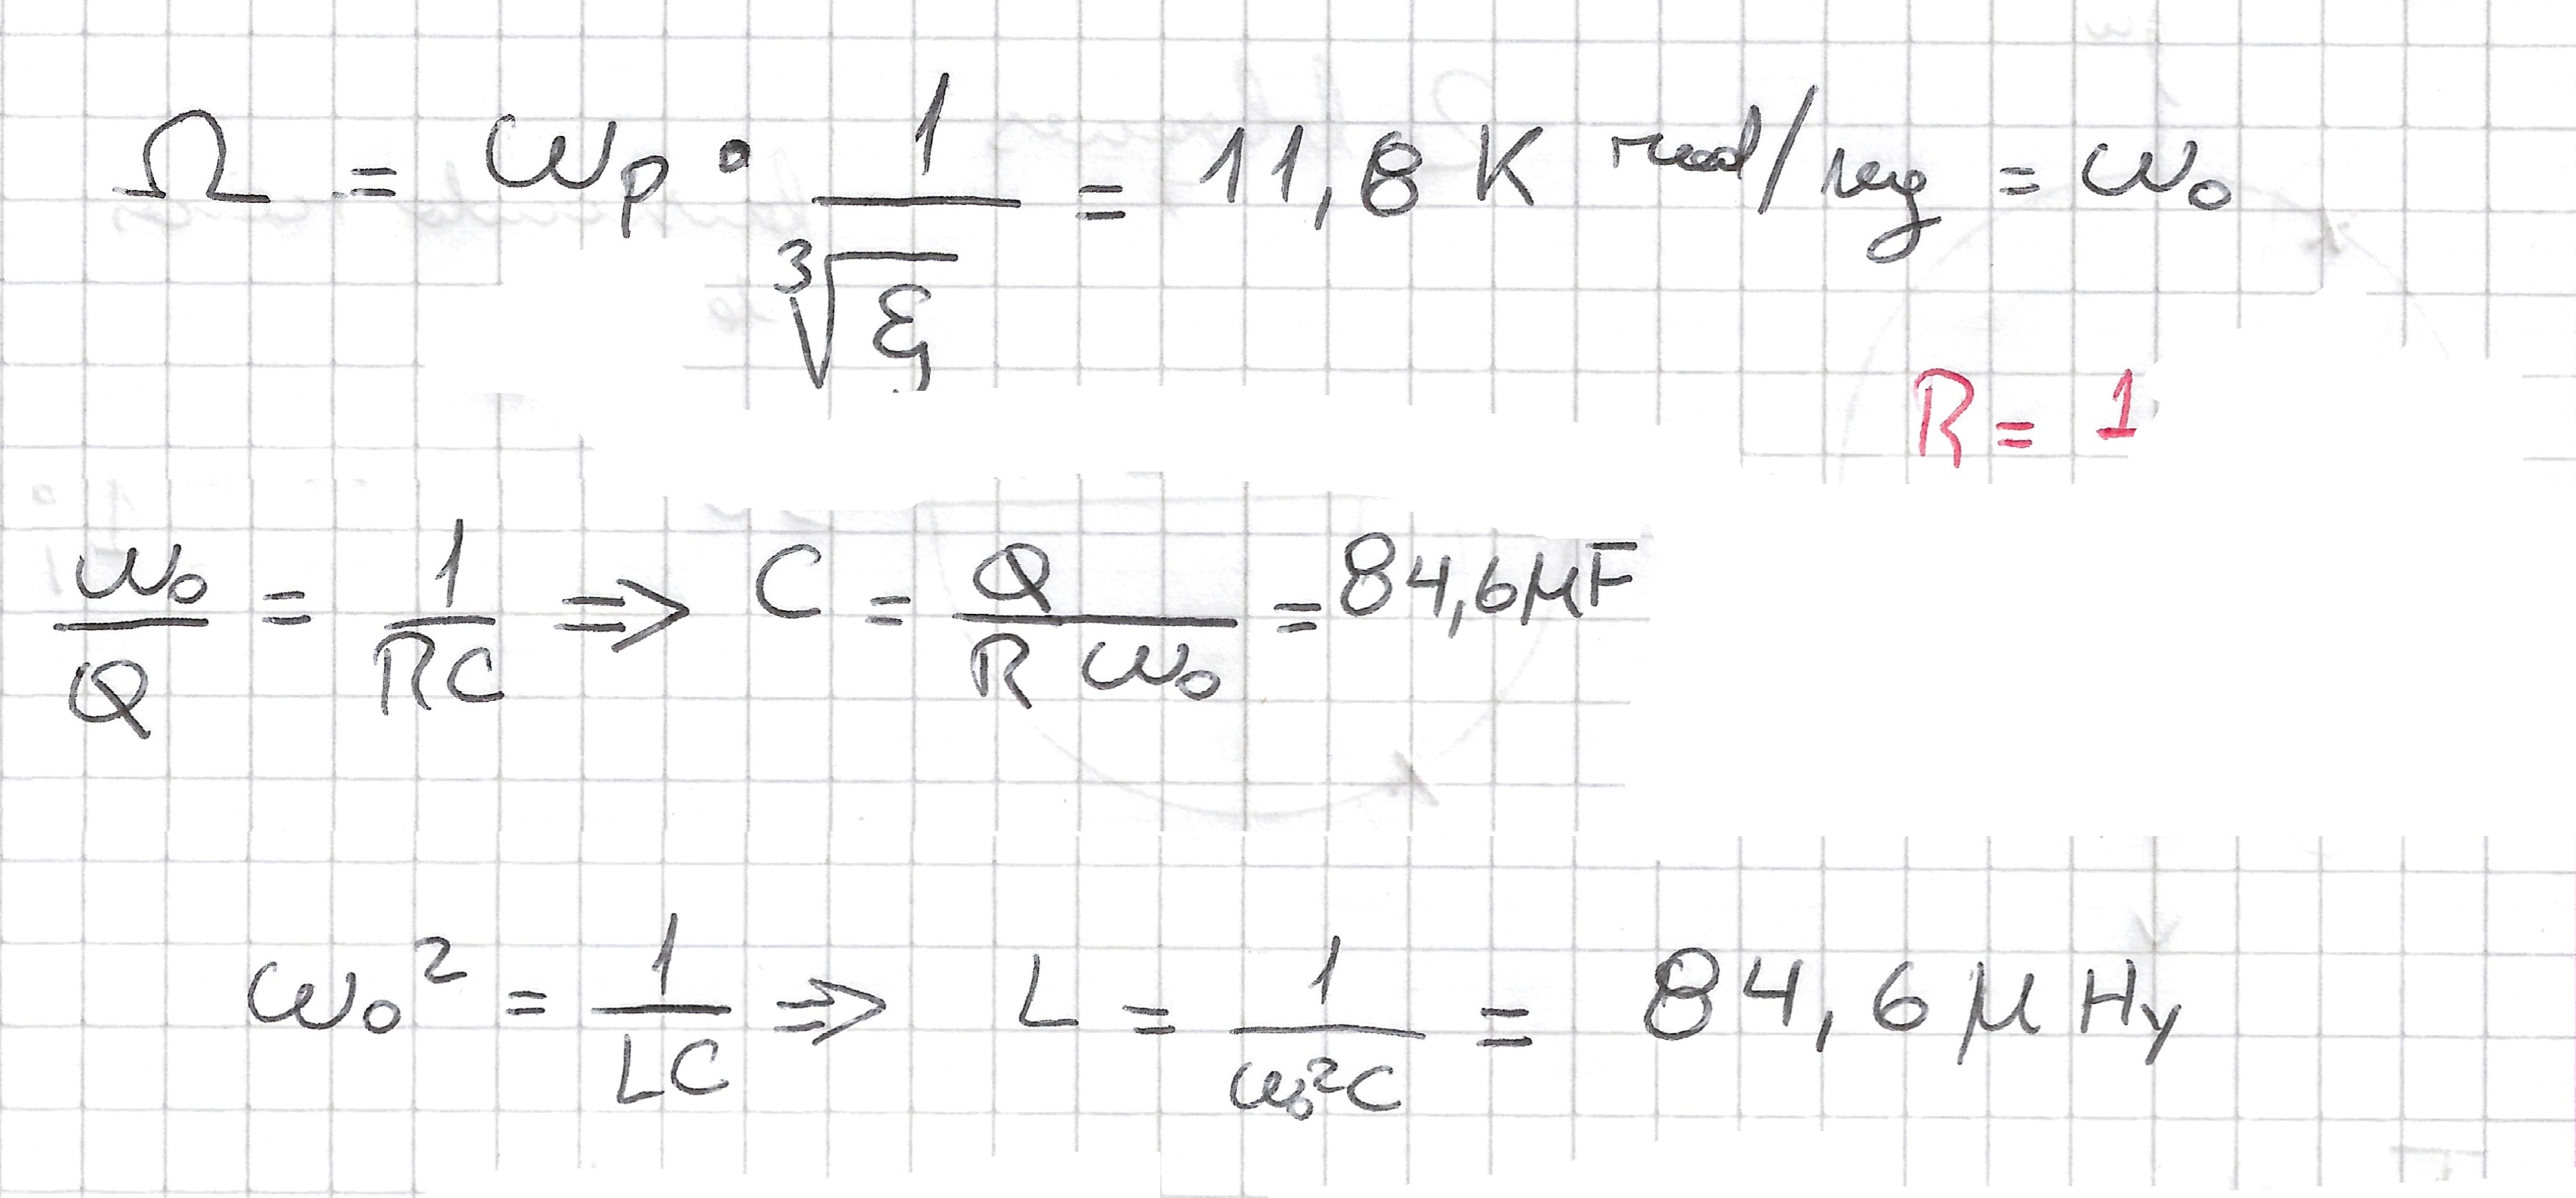 Ω = ωp • 1/∛ξ = 11,8 K rad/seg = ω₀
R = 1
ω₀/Q = 1/RC ⇒ C = Q/(R ω₀) = 84,6 μF
ω₀² = 1/LC ⇒ L = 1/(ω₀²C) = 84,6 μ Hy